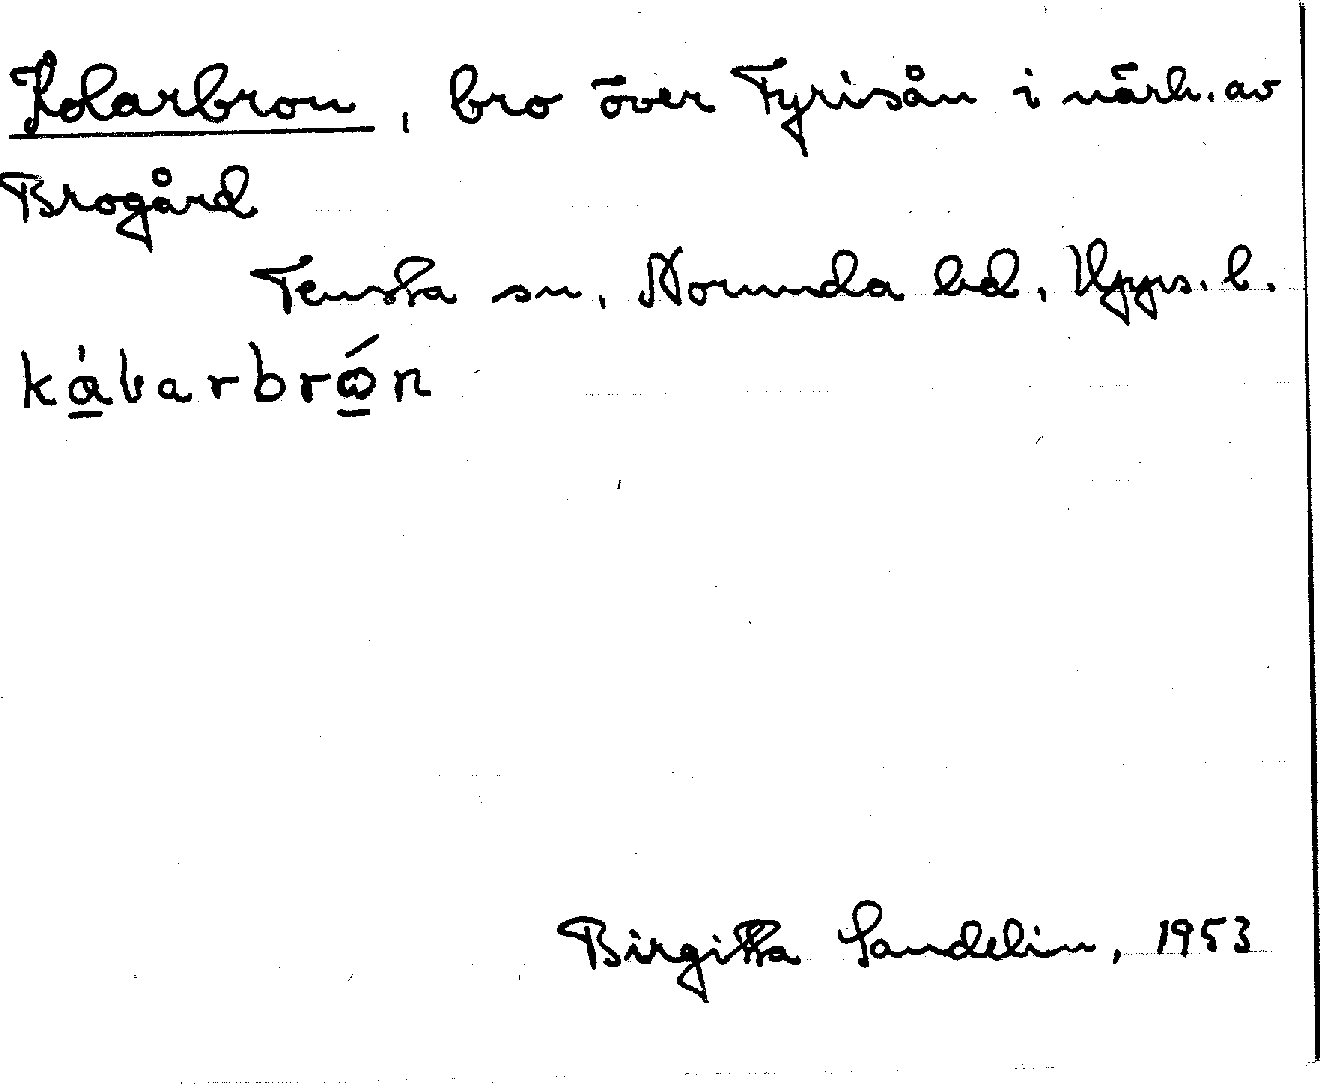 Kolarbron, bro över Fyrisån i närh. av
Brogård
Tensta sn, Norunda hd,
Birgitta Sandelin, 1953